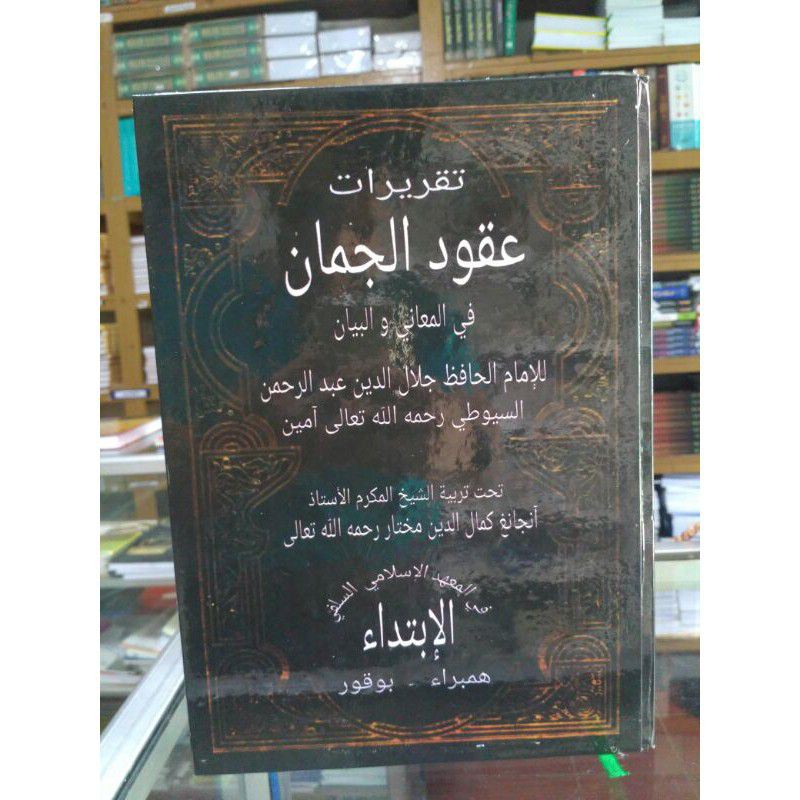 تقريرات
عقود الجمان
في المعاني و البيان
للإمام الحافظ جلال الدين عبد الرحمن
السيوطي رحمه الله تعالى آمين
تحت تربية الشيخ المكرم الأستاذ
أنجانغ كمال الدين مختار رحمه الله تعالى
المعهد الإسلامي السلفي
الإبتداء
همبراء - بوقور